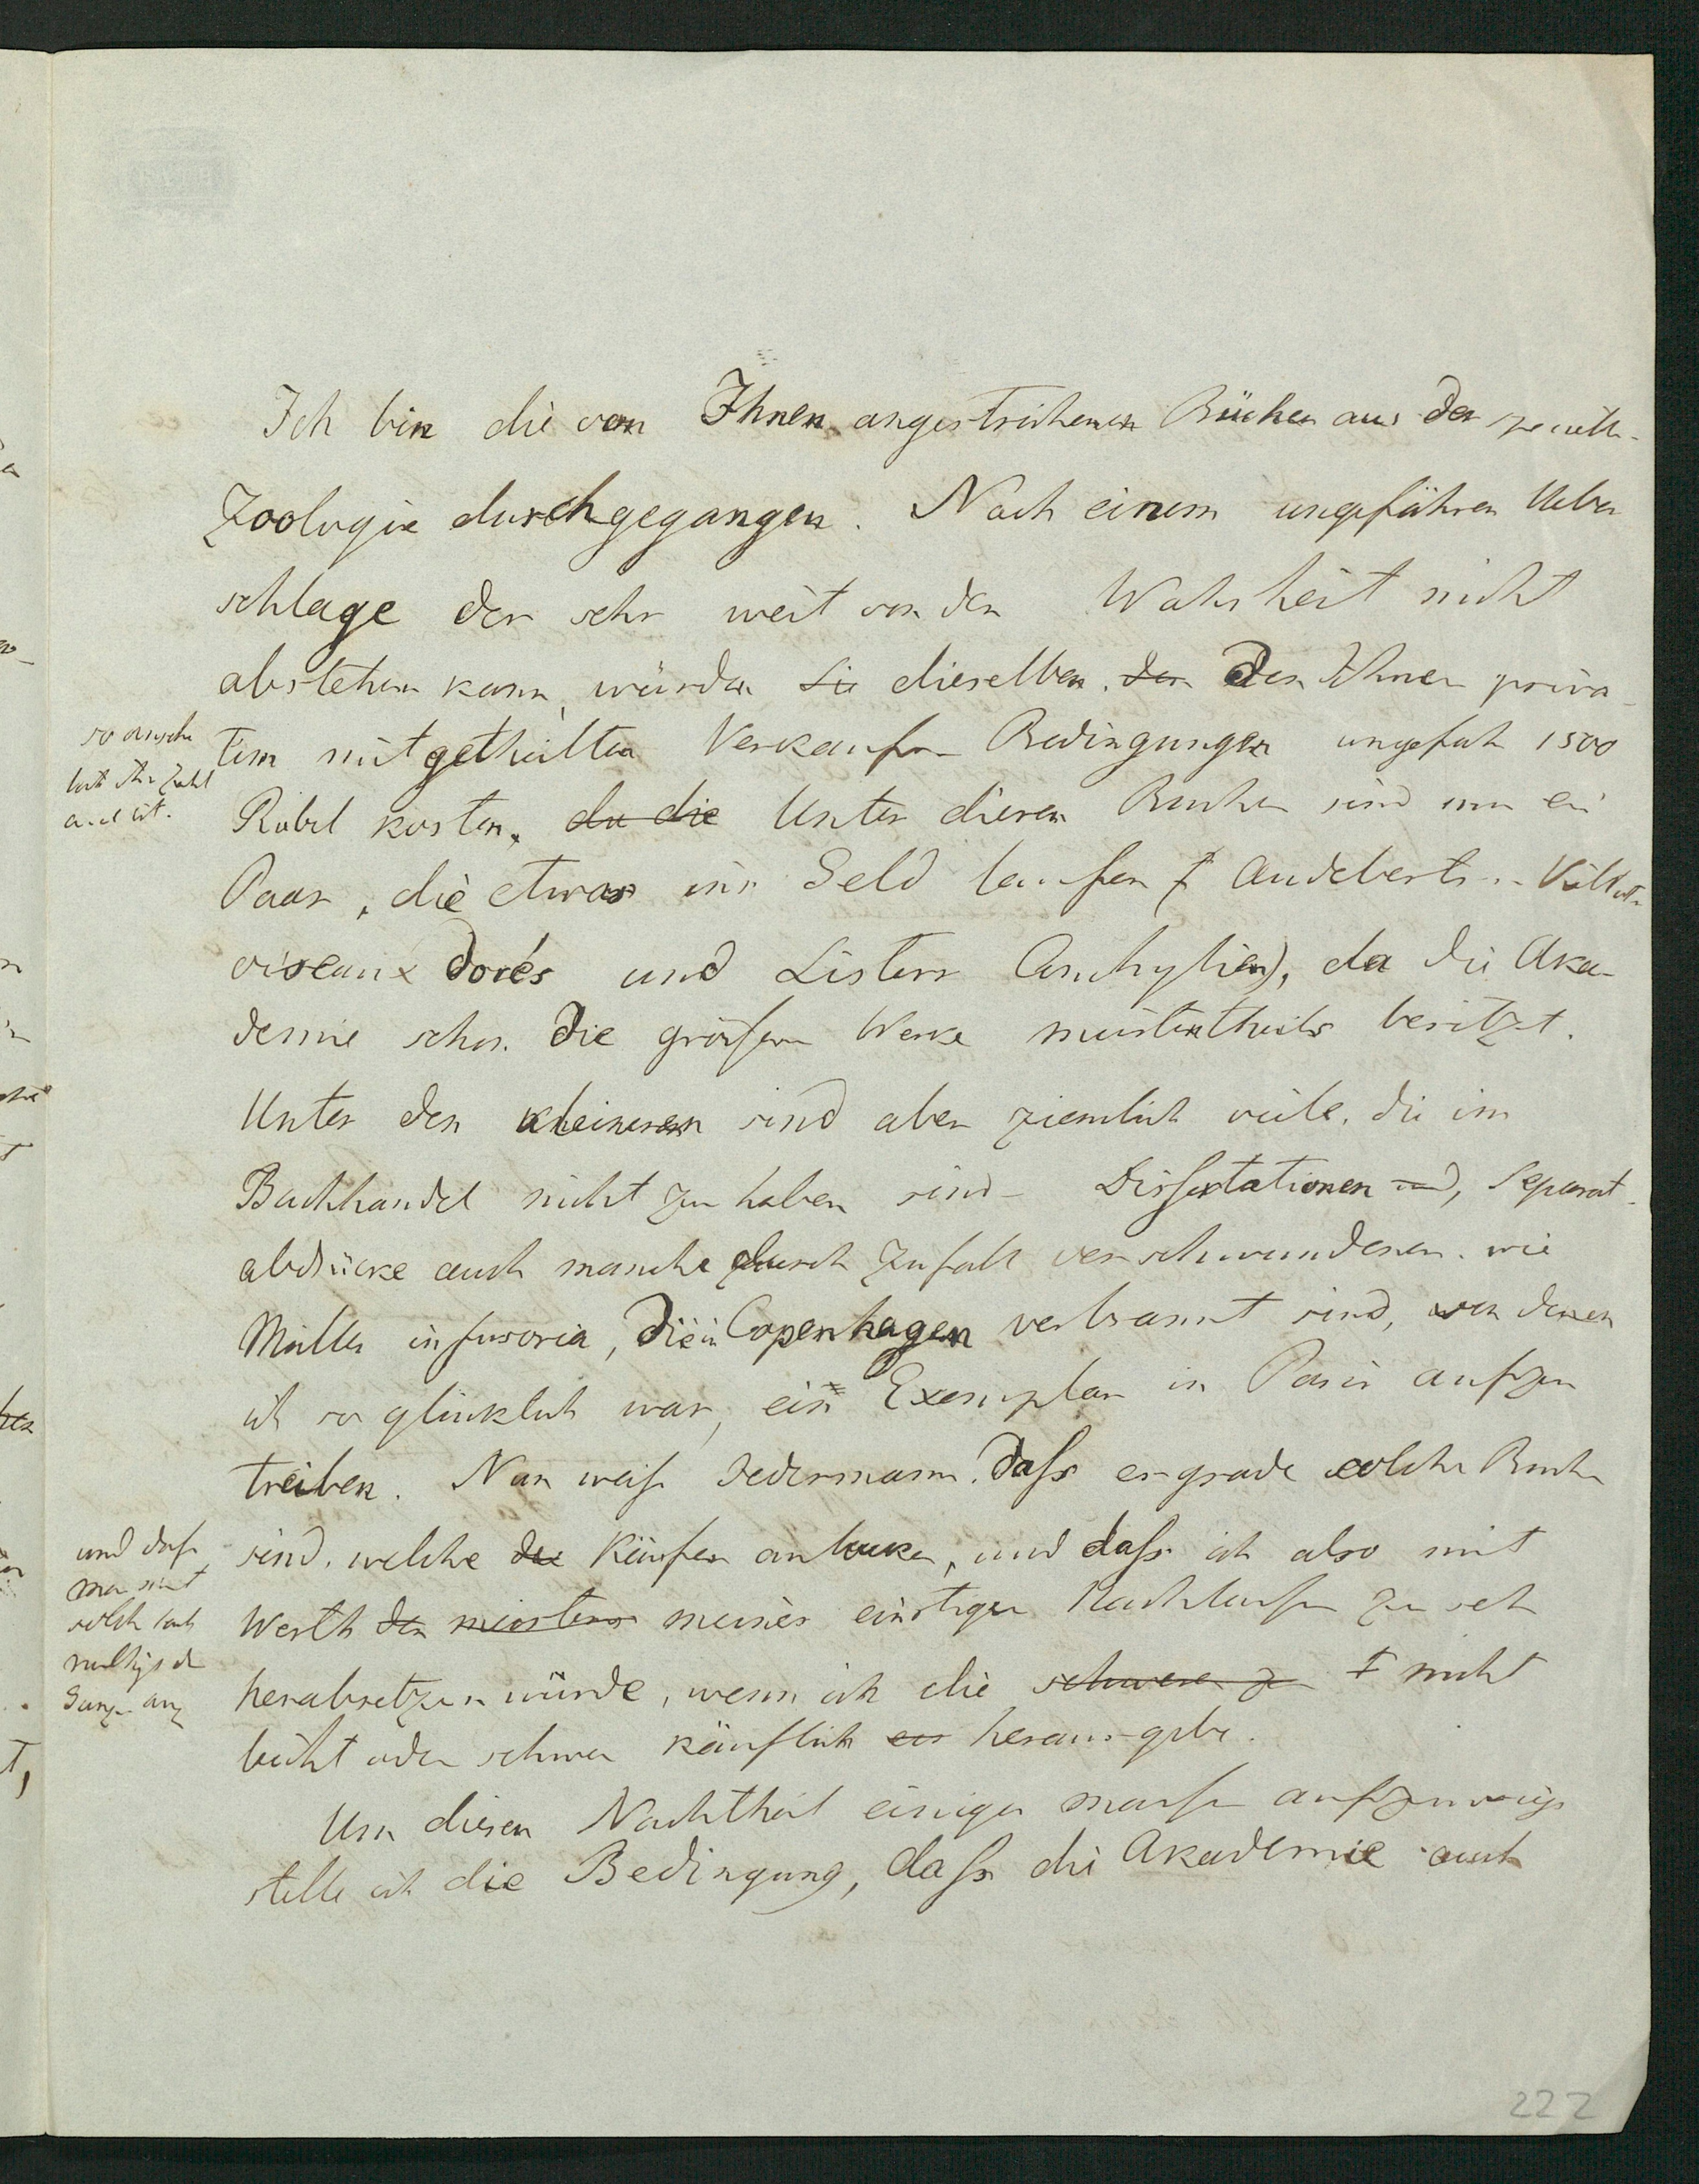 Ich bin die von Ihnen angestrichenen Bücher aus der
Zoologie durchgegangen. Nach einem ungefähren Ueber
schlage der sehr weit von der Wahrheit nicht
abstehen kann, würden sie dieselben. den den Ihnen priva
so ansehn
lich ihre Zahl
auch ist.
tim mitgetheilten Verkaufs- Bedingungen ungefähr 1500
Rubel kosten. da die Unter diesen Büchern sind nun ein
Paar, die etwas ins Geld laufen (Audeberts
oiseaux dorés und Listers Conchylien), da die Aka-
demie schon die größern Werke meistentheils besitzt.
Unter den kleineren sind aber ziemlich viele, die im
Buchhandel nicht zu haben sind - Dissertationen und, Separat-
abdrücke auch manche durch Zufall verschwundenen. wie
Müller infusoria, die in Copenhagen verbrannt sind, von denen
ich so glücklich war, ein Exemplar in Paris aufzu
treiben. Nun weiß Jedermann, daß es grade solche Bücher
sind, welche die Käufer anlocken, und daß ich also mit
und daß
man mit
solch
Ganze
Werth den meisten meines einstigen Nachlasses zu sehr
herabsetzen würde, wenn ich die schwer zu nicht
leicht oder schwer käuflich herausgebe.
Um diesen Nachtheil einiger maßen aufzuwiegen
stelle ich die Bedingung, daß die Akademie auch
222